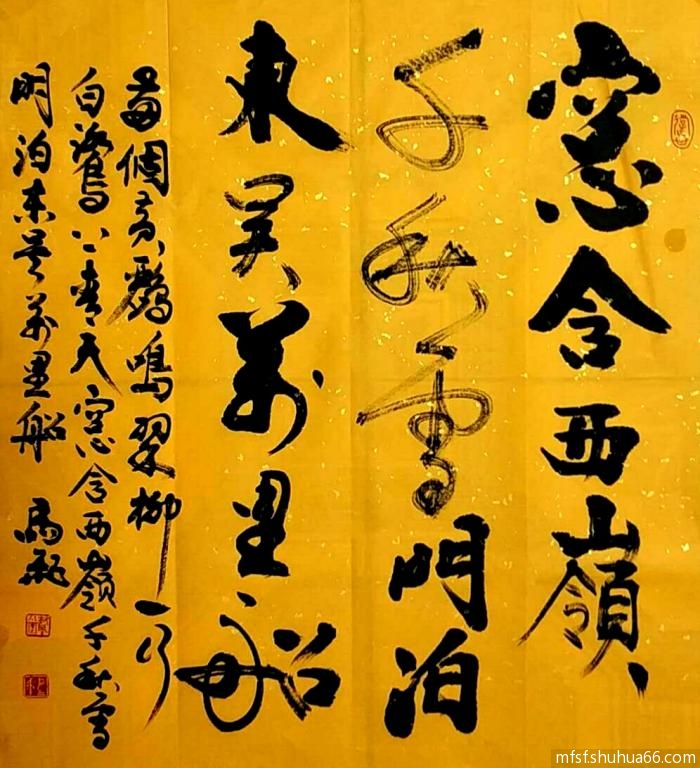 窓含西嶺
千秋雪明泊
東吴萬里船
兩個黄鸝鳴翠柳一行
白鷺上青天窓含西嶺千秋雪
明泊东吴萬里船 馬
mfsf.shuhua66.com